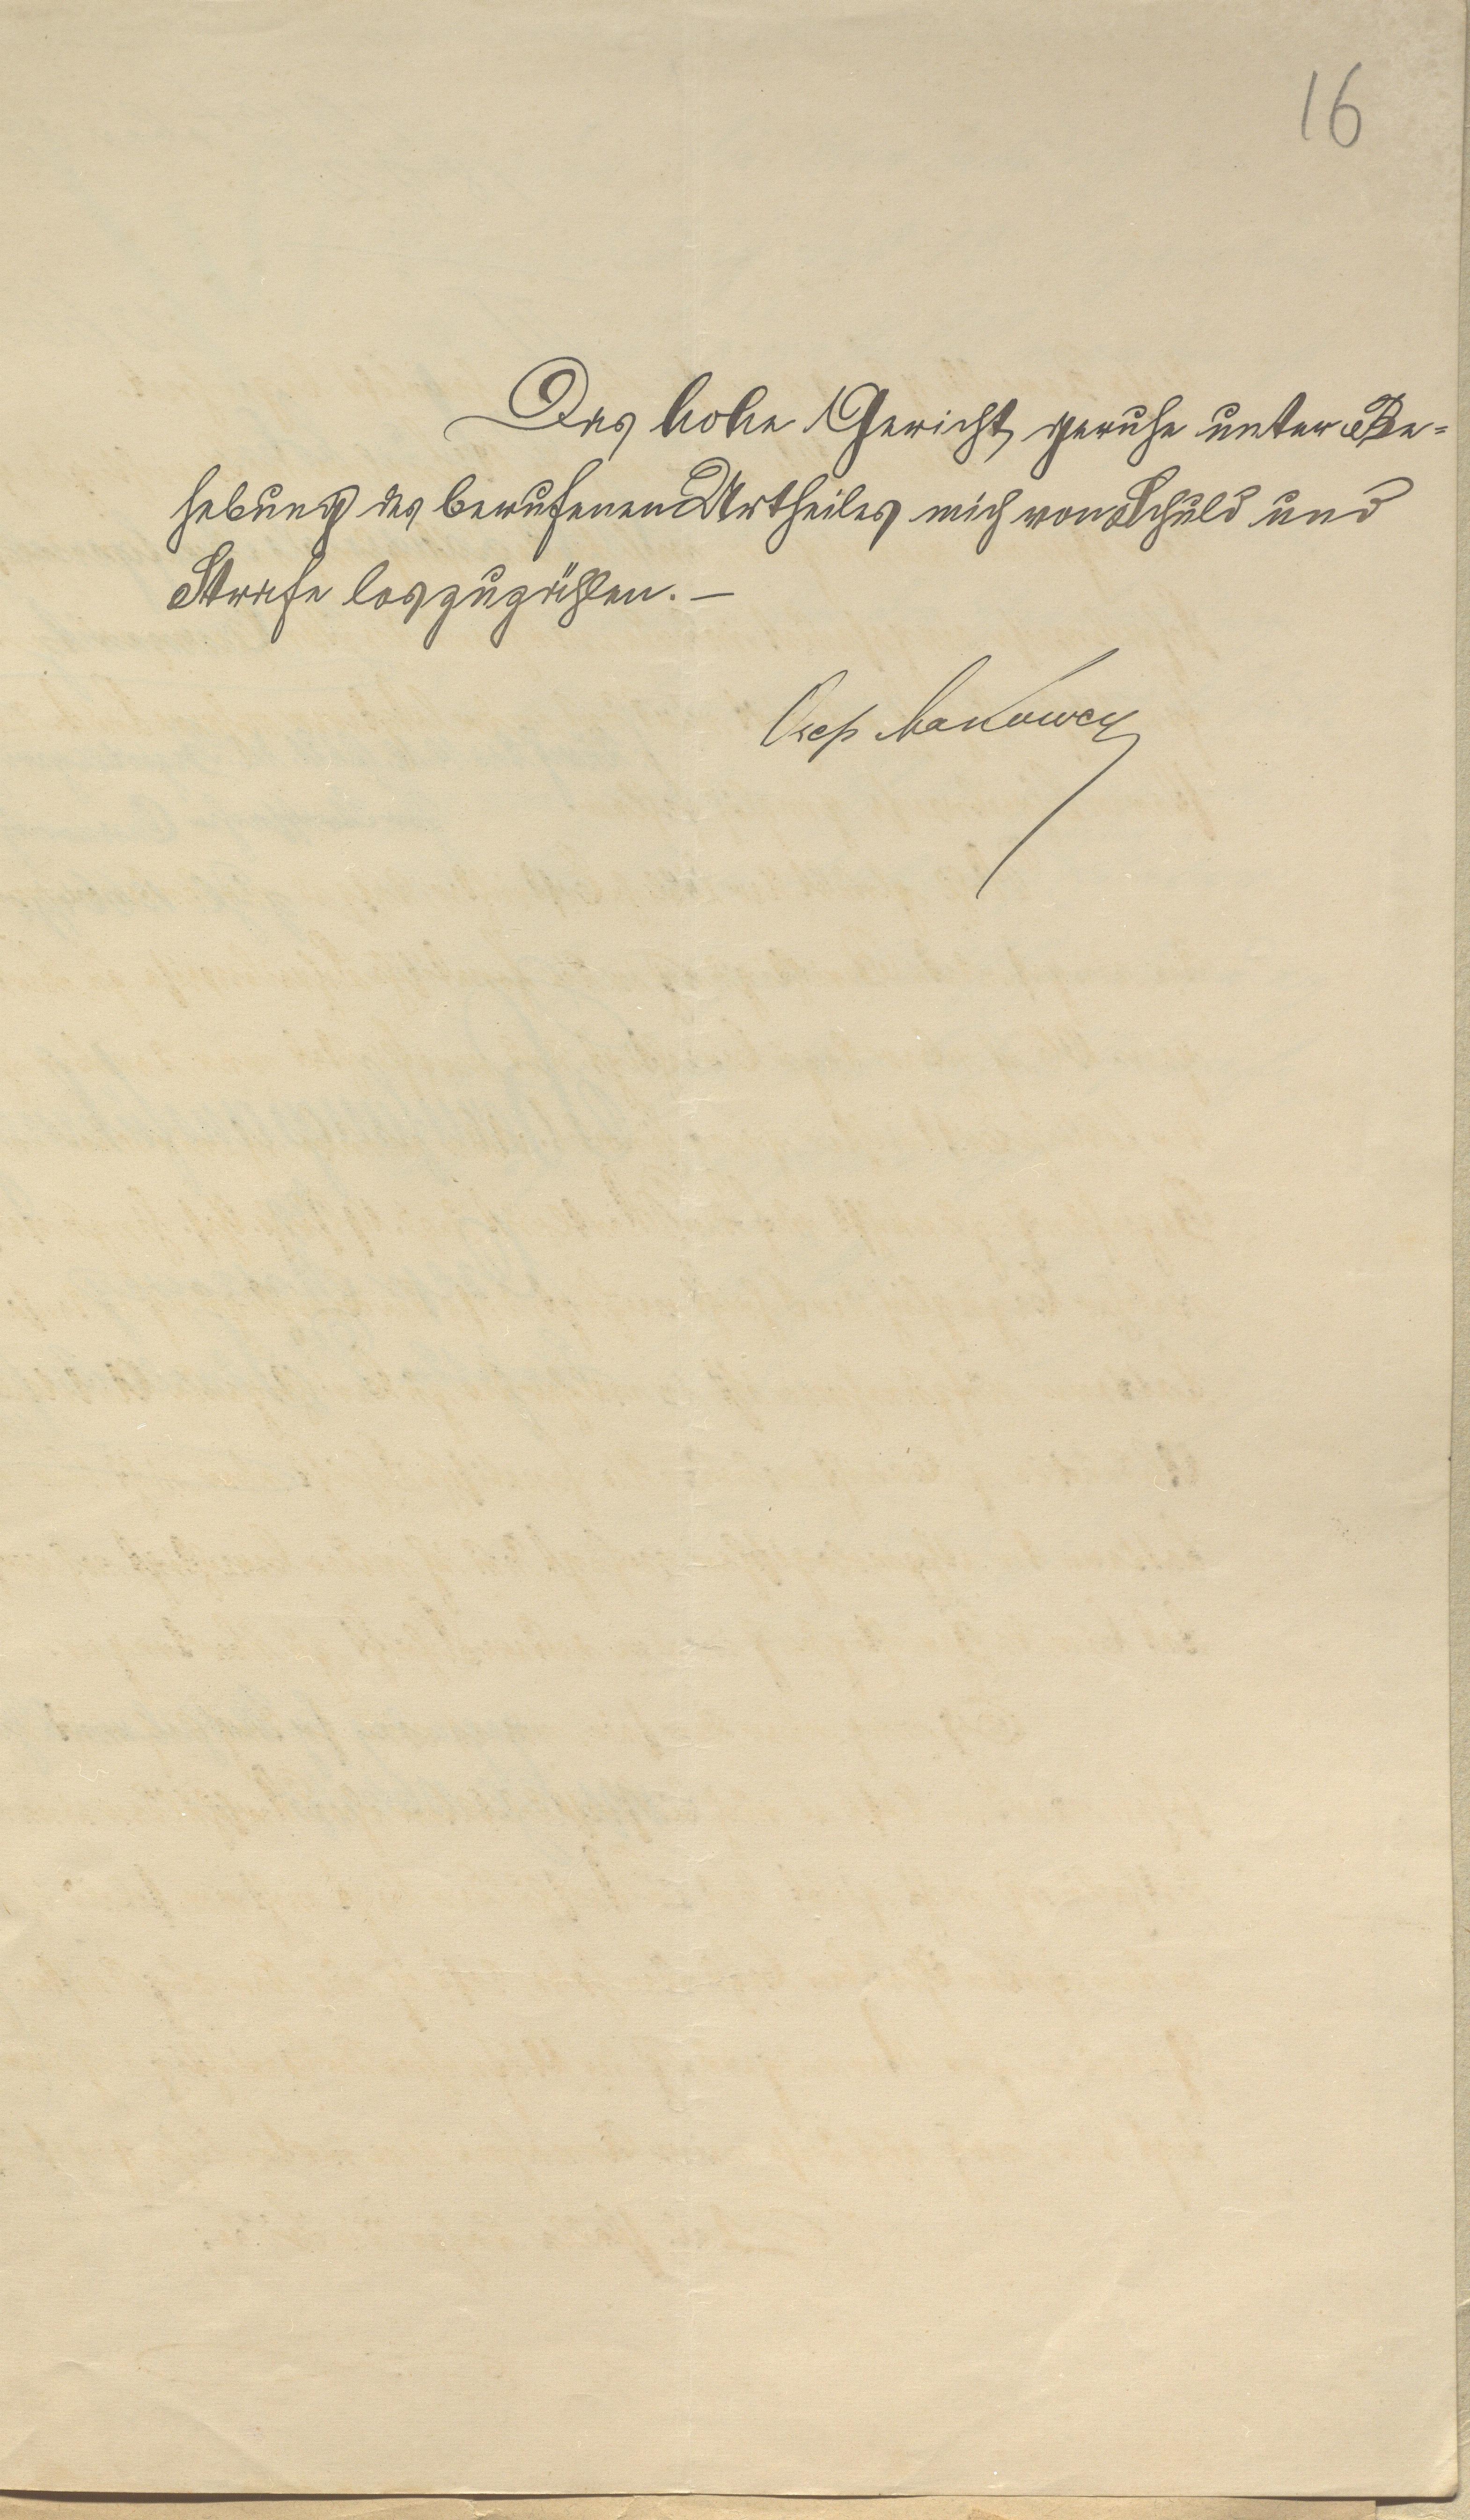 16
Das hohe Gericht geruhe unter Be=
hebung des berufenen Urtheiles mich von Schuld und
Strafe loszuzählen. —
Osep Makowey